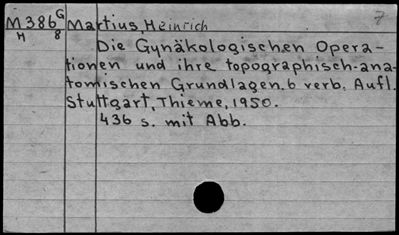 M386 G Martius, Heinrich 7
H 8
Die Gynäkologischen Opera-
tionen und ihre topographisch-ana-
tomischen Grundlagen. 6 verb. Aufl.
Stuttgart, Thieme, 1950.
436 s. mit Abb.